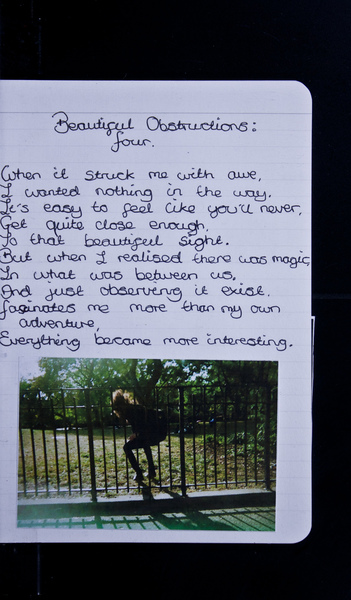 Beautiful Obstructions:
four.
When it struck me with awe,
I wanted nothing in the way.
It's easy to feel like you'll never,
Get quite close enough,
To that beautiful sight.
But when I realised there was magic,
In what was between us,
And just observing it exist.
fasinates me more than my own
adventure,
Everything became more interesting.